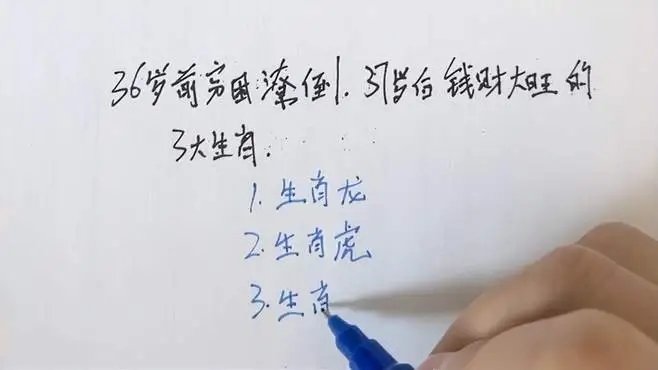 36岁前穷困潦倒,37岁后钱财大旺的
3大生肖.
1.生肖龙
2.生肖虎
3.生肖